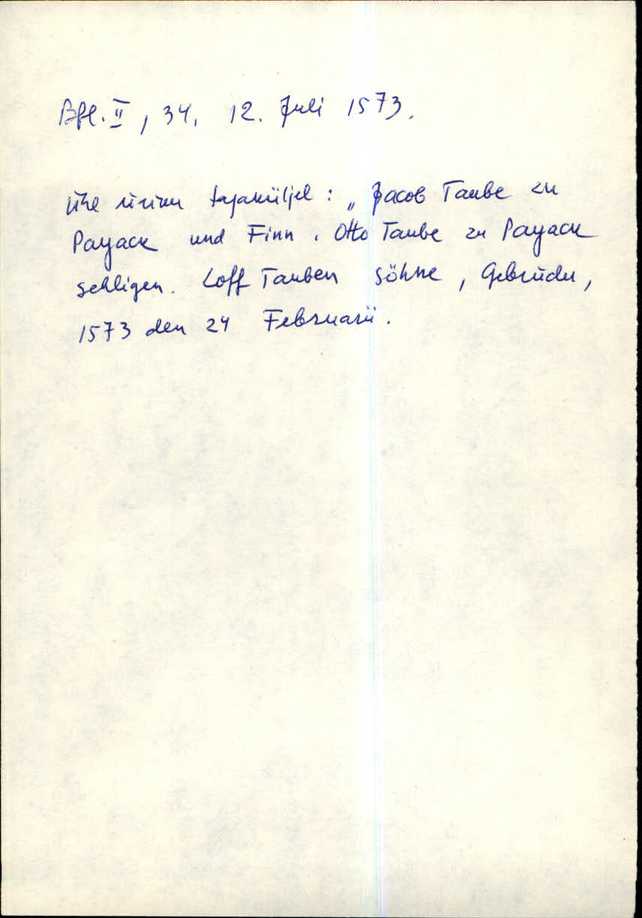 Bfl. II, 34, 12. Juli 1573.
Ühe ürieru tagaküljel: „Jacob Taube zu
Payack und Finn. Otto Taube zu Payack
sehligen. Loff Tauben söhne, Gebrüder,
1573 den 24 Februarii.